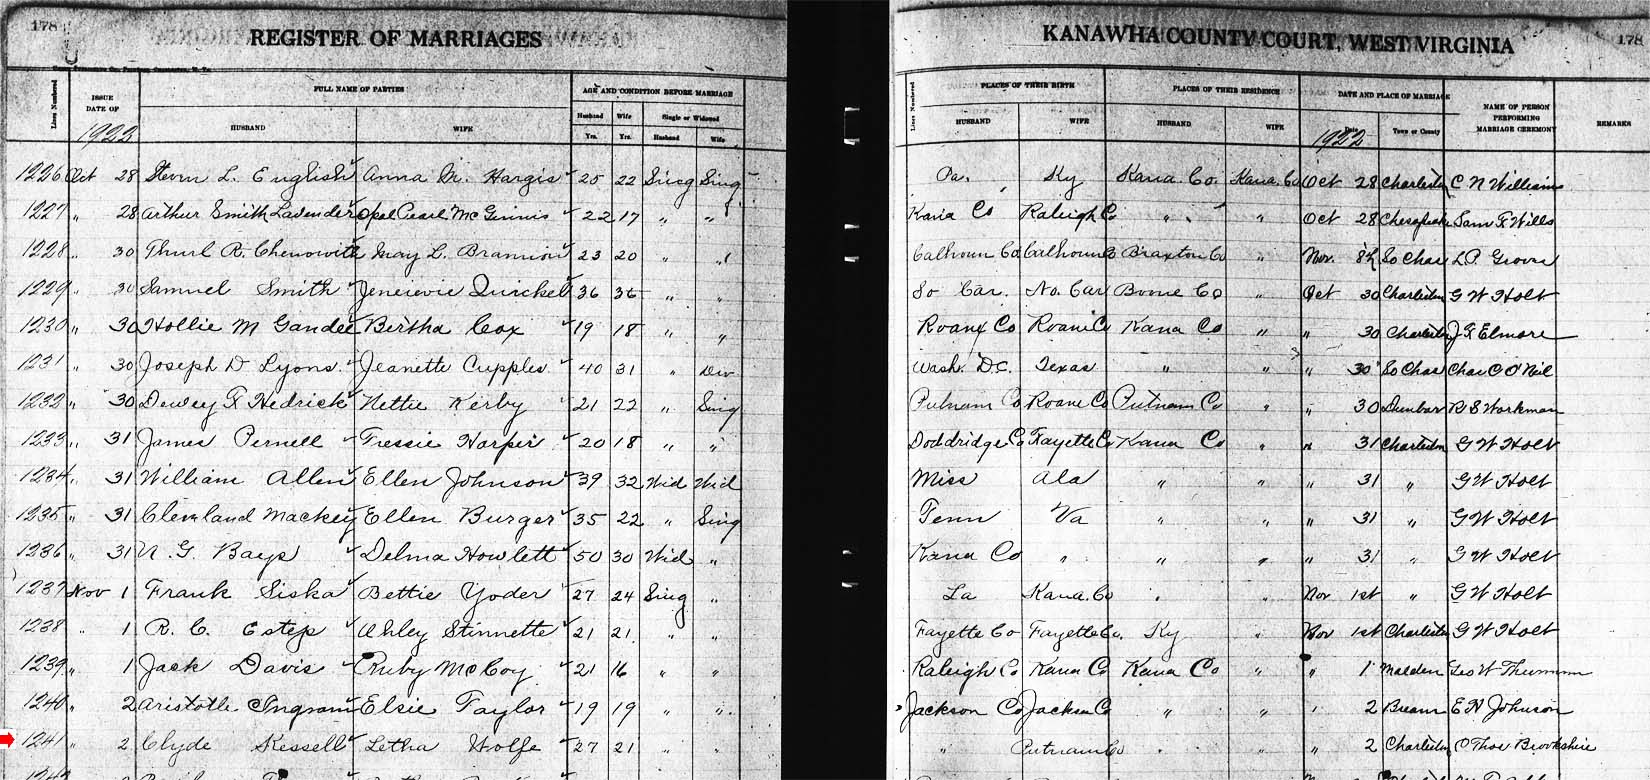 178
REGISTER OF MARRIAGES
ISSUE DATE OF
FULL NAME OF PARTIES
AGE AND CONDITION BEFORE MARRIAGE
Lines Numbered
HUSBAND WIFE
Husband Wife Single or Widowed
Yrs. Yrs. Husband Wife
1922
1226 Oct 28 L. English Anna M. Hargis 25 22 Sing Sing
1227 " 28 Arthur Smith Lavender Opal Pearl McGinnis 22 17 " "
1228 " 30 Thurl R. Chenowith May L. 23 20 " "
1229 " 30 Samuel Smith Jeneievie Quickel 36 36 " "
1230 " 30 Hollie M Gandee Bertha Cox 19 18 " "
1231 " 30 Joseph D Lyons Jeanette Cupples 40 31 " Div
1232 " 30 Dewey F Hedrick Nettie Kerby 21 22 " Sing
1233 " 31 James Pernell Tressie Harper 20 18 " "
1234 " 31 William Allen Ellen Johnson 39 32 Wid Wid
1235 " 31 Cleveland Mackey Ellen Burger 35 22 " Sing
1236 " 31 G. Bays Delma Howlett 50 30 Wid "
1237 Nov 1 Frank Siska Bettie Yoder 27 24 Sing "
1238 " 1 R. C. Estep Stinnette 21 21 " "
1239 " 1 Jack Davis Ruby McCoy 21 16 " "
1240 " 2 Aristotle Ingram Elsie Taylor 19 19 " "
1241 " 2 Clyde Kessell Letha Wolfe 27 21 " "
KANAWHA COUNTY COURT, WEST VIRGINIA
178
Lines Numbered
PLACES OF THEIR BIRTH
PLACES OF THEIR RESIDENCE
DATE AND PLACE OF MARRIAGE
NAME OF PERSON PERFORMING MARRIAGE CEREMONY
REMARKS
HUSBAND WIFE HUSBAND WIFE Date Town or County
1922
Pa. Ky Kana. Co. Kana. Co Oct 28 Charleston C N Williams
Kana Co Raleigh Co " " Oct 28 Chesapeake Sam F Wills
Calhoun Co Calhoun Co Braxton Co " Nov. 8th So Chas L.P. Groves
So Car. No. Car Boone Co " Oct 30 Charleston G W Holt
Roane Co Roane Co Kana Co " " 30 Charleston J F Elmore
Wash. D.C. Texas " " " 30 So Chas Chas C O'Neil
Putnam Co Roane Co Putnam Co " " 30 Dunbar R S Workman
Doddridge Co Fayette Co Kana Co " " 31 Charleston G W Holt
Miss Ala " " " 31 " G W Holt
Tenn Va " " " 31 " G W Holt
Kana Co " " " " 31 " G W Holt
La Kana. Co " " Nov 1st " G W Holt
Fayette Co Fayette Co. Ky " Nov 1st Charleston G W Holt
Raleigh Co Kana Co Kana Co " " 1 Malden Geo W Thurman
Jackson Co Jackson Co " " " 2 Bream E N Johnson
" Putnam Co " " " 2 Charleston C Thos Brookshire